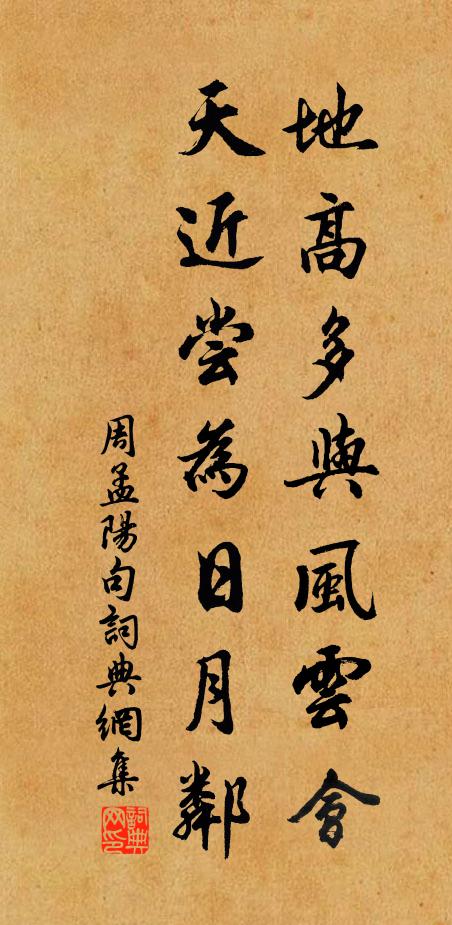 地高多與風雲會
天近尝為日月鄰
周孟陽句詞典網集
詞典网印